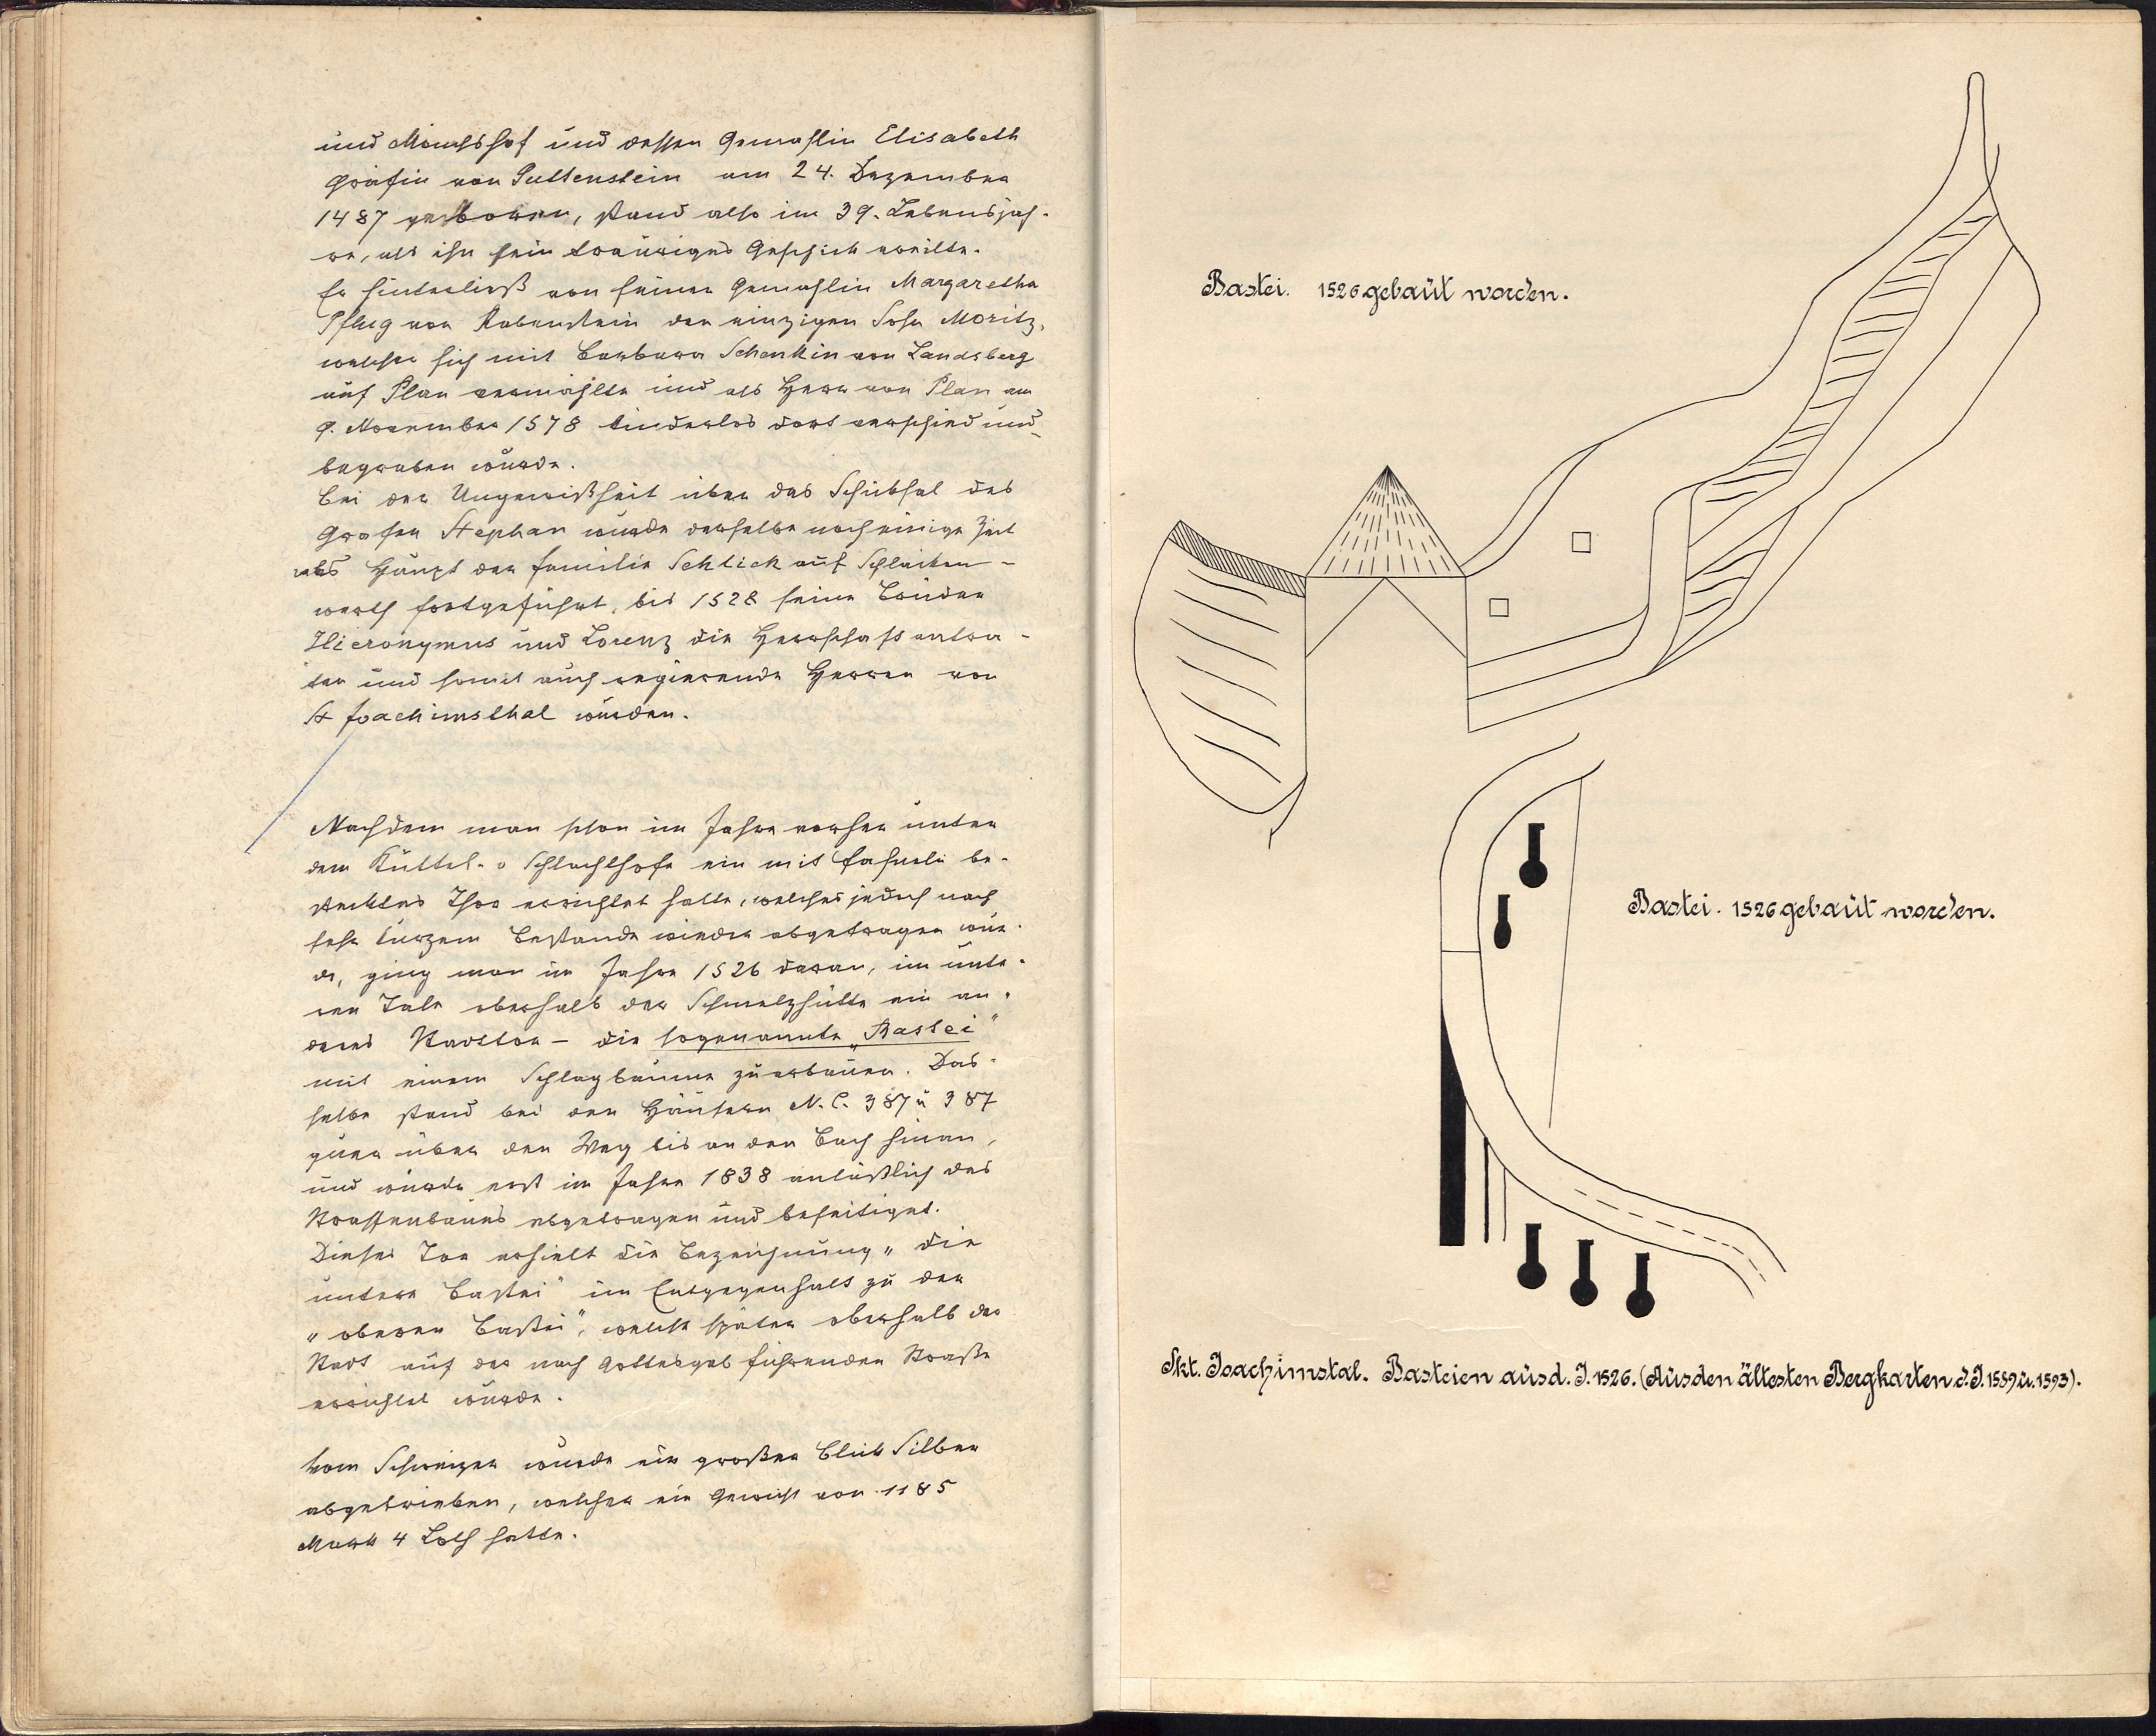 und Mönchshof und dessen Gemahlin Elisabeth
Gräfin von Guttenstein am 24. Dezember
1487 geboren, stand also im 39. Lebensjah-
re, als ihn sein trauriges Geschick ereilte.
Er hinterließ von seiner Gemahlin Margaretha
Pflug von Rabenstein den einzigen Sohn Moritz,
welcher sich mit Barbara Schenkin von Landsberg
auf Plan vermählte und als Herr von Plan am
9. November 1578 kinderlos dort verschied und
begraben wurde.
Bei der Ungewißheit über das Schicksal des
Grafen Stephan wurde derselbe noch einige Zeit
als Haupt der Familie Schlick auf Schlacken-
werth fortgeführt, bis 1528 seine Brüder
Hieronymus und Lorenz die Herrschaft antra-
ten und somit auch regierende Herren von
St Joachimsthal wurden.
Nachdem man schon im Jahre vorher unter
dem Kuttel- o Schlachthofe ein mit be-
stecktes Thor errichtet hatte, welches jedoch nach
sehr kurzem Bestande wieder abgetragen wur-
de, ging man im Jahre 1526 daran, im unte-
ren Tale oberhalb der Schmelzhütte ein an-
deres Stadttor – die sogenannte „Bastei"
mit einem Schlagbaume zu erbauen. Das-
selbe stand bei den Häusern N. C. 387 u 387
quer über den Weg bis an den Bach hinan,
und wurde erst im Jahre 1838 anläßlich des
Strassenbaues abgetragen und beseitiget.
Dieses Tor erhielt die Bezeichnung „die
untere Bastei" im Entgegenhalt zu der
„oberen Bastei", welche später oberhalb der
Stadt auf der nach Gottesgab führenden Straße
errichtet wurde.
Vom Schweizer wurde ein großer Blick Silber
abgetrieben, welcher ein Gewicht von 1185
Mark 4 Loth hatte.
Bastei. 1526 gebaut worden.
Bastei. 1526 gebaut worden.
Skt. Joachimstal. Basteien aus d. J. 1526. (Aus den ältesten Bergkarten d. J. 1589 u. 1593).